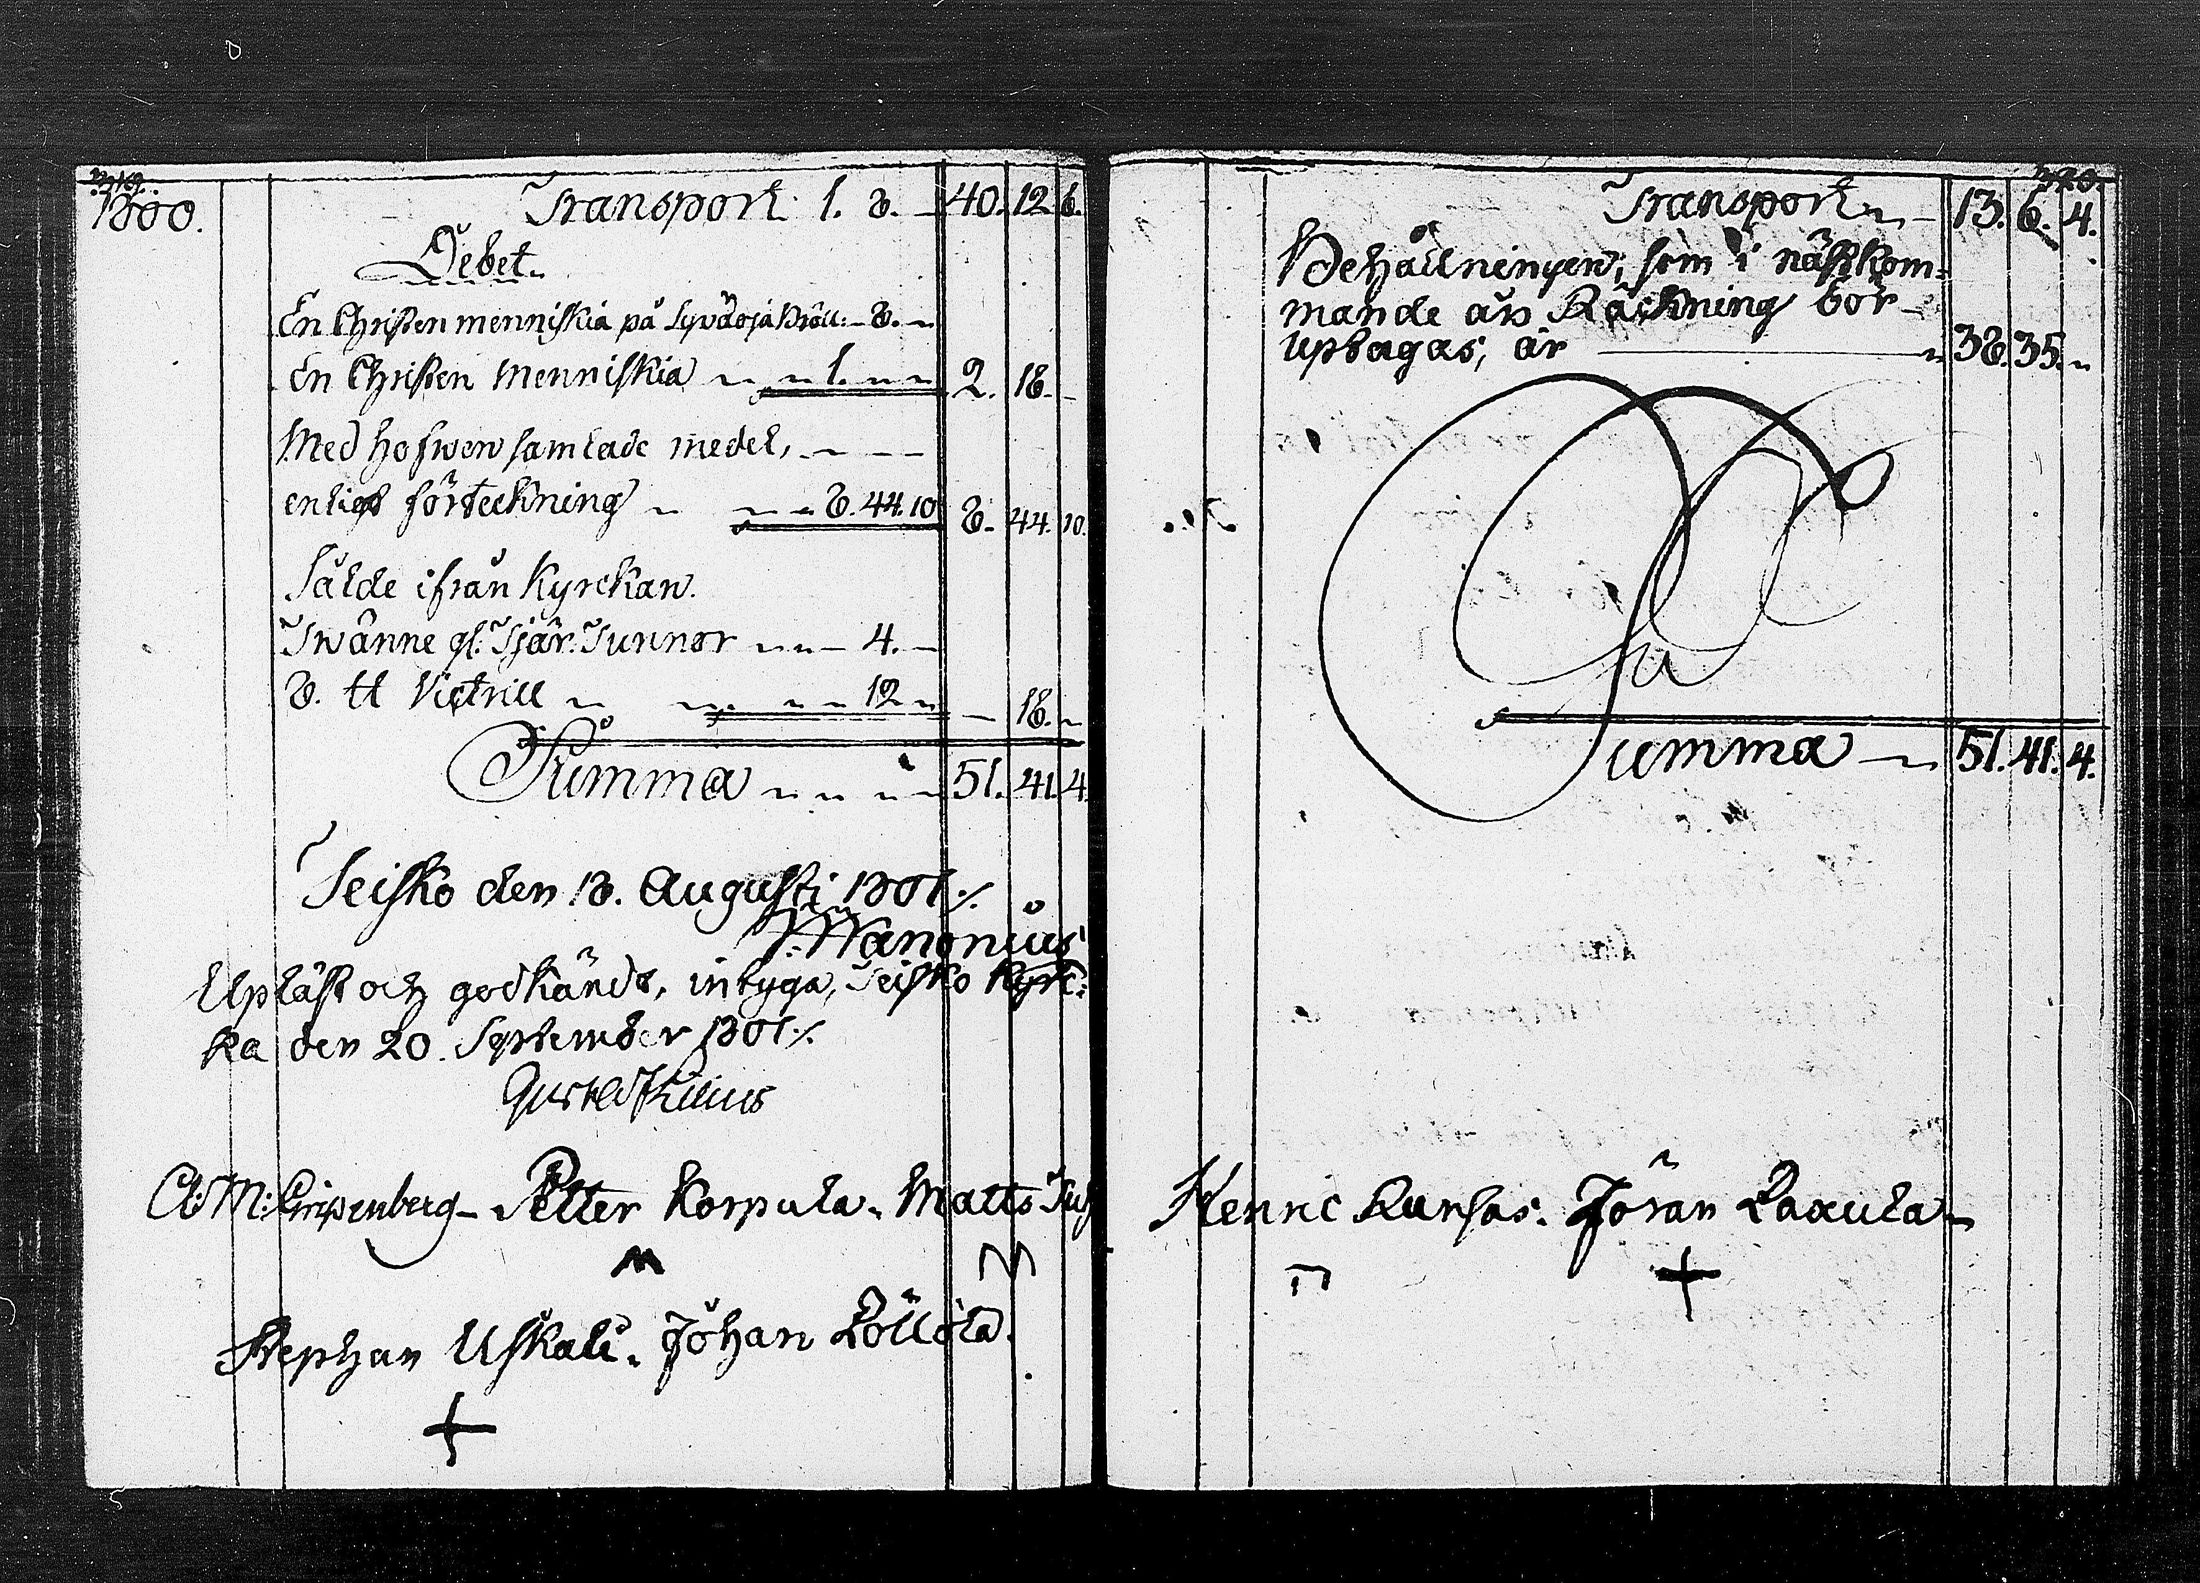 1800.
Transport 1. 8. 40. 12. 6.
Debet.
En Christen menniskia på 8.
En Christen Menniskia 1. 2. 18.
Med hofwen samlade medel,
enligt förteckning 8. 44. 10 8. 44. 10.
Sålde ifrån Kyrckan.
Twänne gl. Tjär. Tunnor 4.
8. ℔ Victrill 12 18.
Summa 51. 41. 4.
Teisko den 18. Augusti 1801 ./.
Wanonius
Upläst och godkändt, intyga, Teisko Kyrc-
ka den 20. September 1801 ./.
Gustav Kilius
C: M: Gripenberg Petter Korpula. Matts
Stephan Uskali. Johan Löllölä.
320.
Transport 13. 6. 4.
Behållningen, som i nästkom=
mande års Räckning bör
uptagas, är 38. 35.
Summa 51. 41. 4.
Henric Kunsas. Jöran Laxula